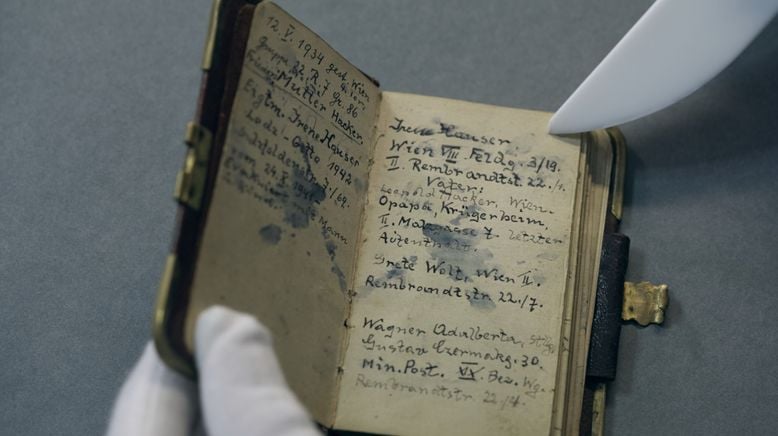 12. V. 1934 gest. Wien
Gruppe 22. R. 7 Gr. 86
Mutter Hacker.
Irene Hauser
Lodz. Getto 1942
24. X. 1941
Evakuiert mit Mann
Irene Hauser
Wien VIII. Feldg. 3/19.
II. Rembrandtst. 22./7.
Vater:
Leopold Hacker, Wien.
Opapa Krügerheim.
II. Malzgasse 7. letzter
Aufenthalt.
Grete Wolf, Wien II.
Rembrandtstr. 22./7.
Wagner Adalberta,
Gustav Czermakg. 30.
Min. Post. XIX. Bez. Wg.
Rembrandtstr. 22/4.